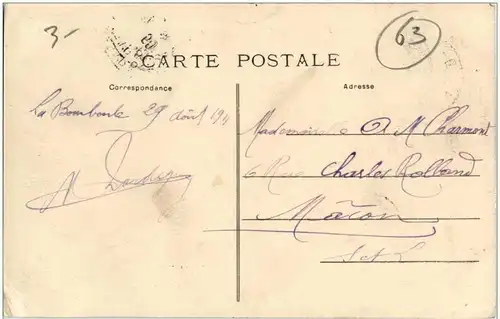 3-
63
CARTE POSTALE
Correspondance
Adresse
La Bourboule 29 Août 191
Mademoiselle A M Charmont
6 Rue Charles Rolland
Mâcon
S et L